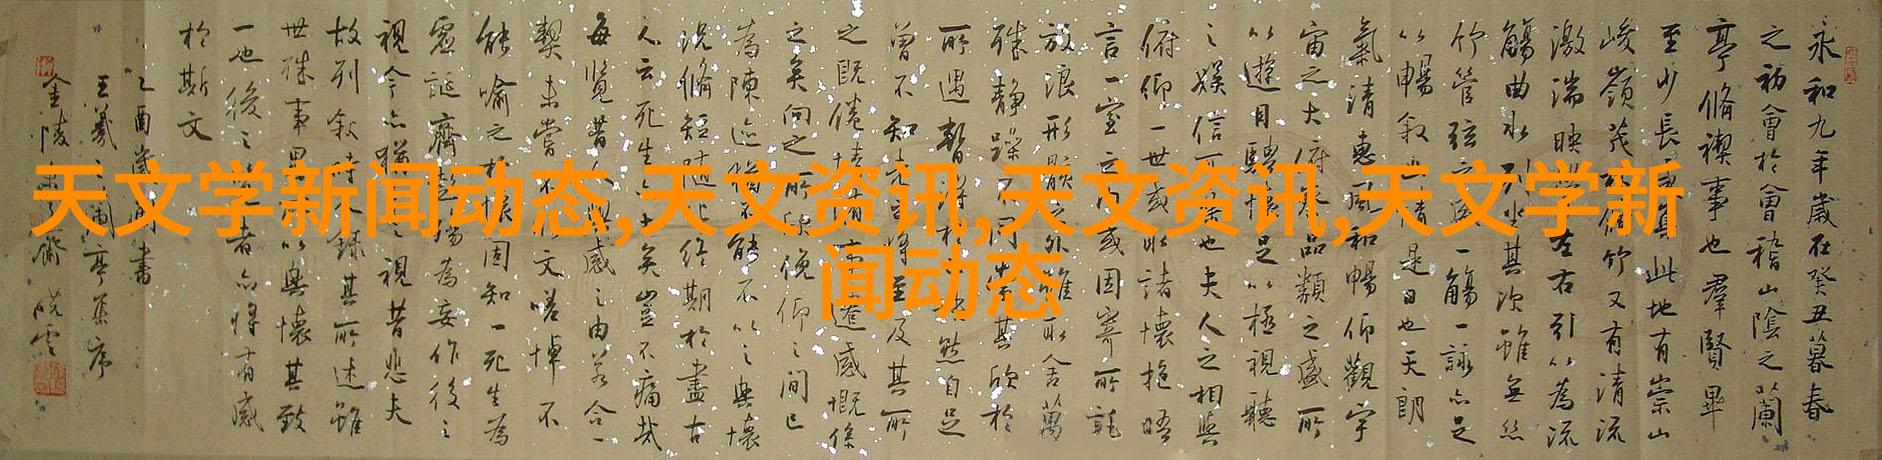 天文学新闻动态,天文资讯,天文资讯,天文学新
闻动态
永和九年歲在癸丑暮春
之初會於會稽山陰之蘭
亭脩禊事也羣賢畢
至少長咸集此地有崇山
峻嶺茂林脩竹又有清流
激湍映帶左右引以為流
觴曲水列坐其次雖無絲
竹管弦之盛一觴一詠亦足
以暢叙幽情是日也天朗
氣清惠風和暢仰觀宇
宙之大俯察品類之盛所
以遊目騁懷足以極視聽
之娛信可樂也夫人之相與
俯仰一世或取諸懷抱晤
言一室之內或因寄所託
放浪形骸之外雖取舍萬
殊靜躁不同當其欣於
所遇暫得於己快然自足
曾不知老之將至及其所
之既倦情隨事遷感慨係
之矣向之所欣俛仰之間已
為陳迹猶不能不以之興懷
況脩短隨化終期於盡古
人云死生亦大矣豈不痛哉
每覽昔人興感之由若合一
契未嘗不臨文嗟悼不
能喻之於懷固知一死生為
虛誕齊彭殤為妄作後之
視今亦猶今之視昔悲夫
故列敘時人錄其所述雖
世殊事異所以興懷其致
一也後之覽者亦將有感
於斯文
乙酉書
王羲之蘭亭集序
金陵齋雲